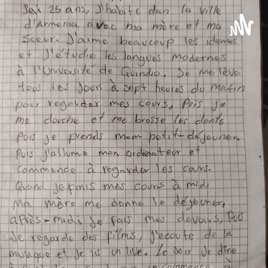 J'ai 25 ans, J'habite dan la ville
d'Armenia avec ma mère et ma
Soeur. J'aime beaucoup les idiomes
et J'étudie les langues modernes
à l'Université de Quindio. Je me lève
tous les jours à sept heures du matins
pour regarder mes cours, Puis je
me douche et me brosse les dents
Puis je prends mom petit-déjeuner,
Puis j'allume mon ordinateur et
commence à regarder les cours.
Quand je finis mes cours à midi
Ma mère me donne le déjeuner,
après-midi je fais mes devoirs, Puis
Je regarde des films, J'écoute de la
musique et je lis un livre. Le soir je dîne